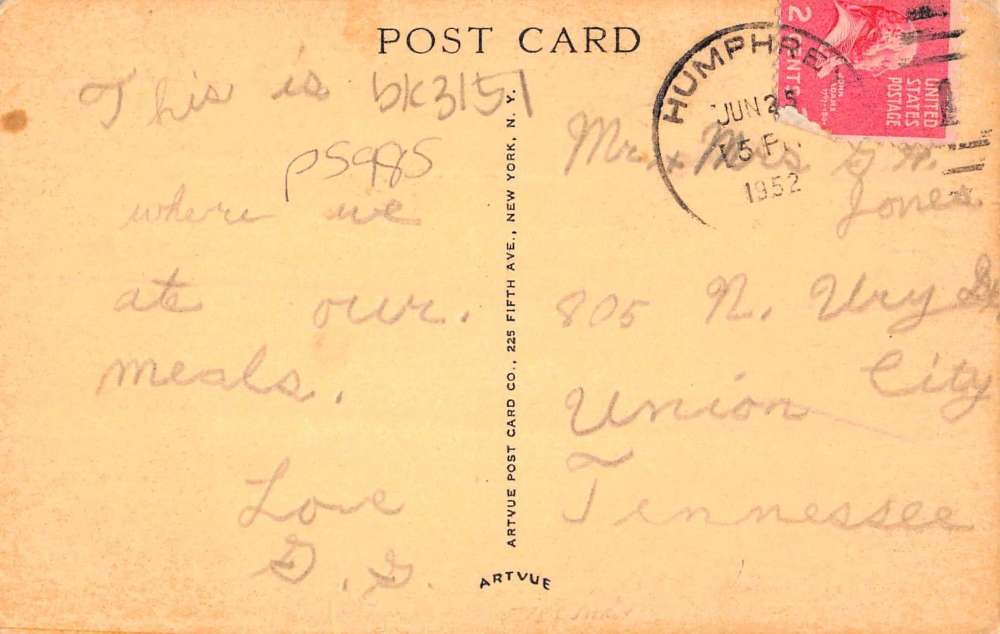 POST CARD
This is bk3151
p5985
where we
ate our
meals.
Love
G. G.
ARTVUE POST CARD CO., 225 FIFTH AVE., NEW YORK, N. Y.
ARTVUE
HUMPHRE
JUN 25
5 P
1952
2 CENTS 2
JOHN ADAMS
UNITED
STATES
POSTAGE
Mr. & Mrs G. W.
Jones
805 N. Ury
Union City
Tennessee